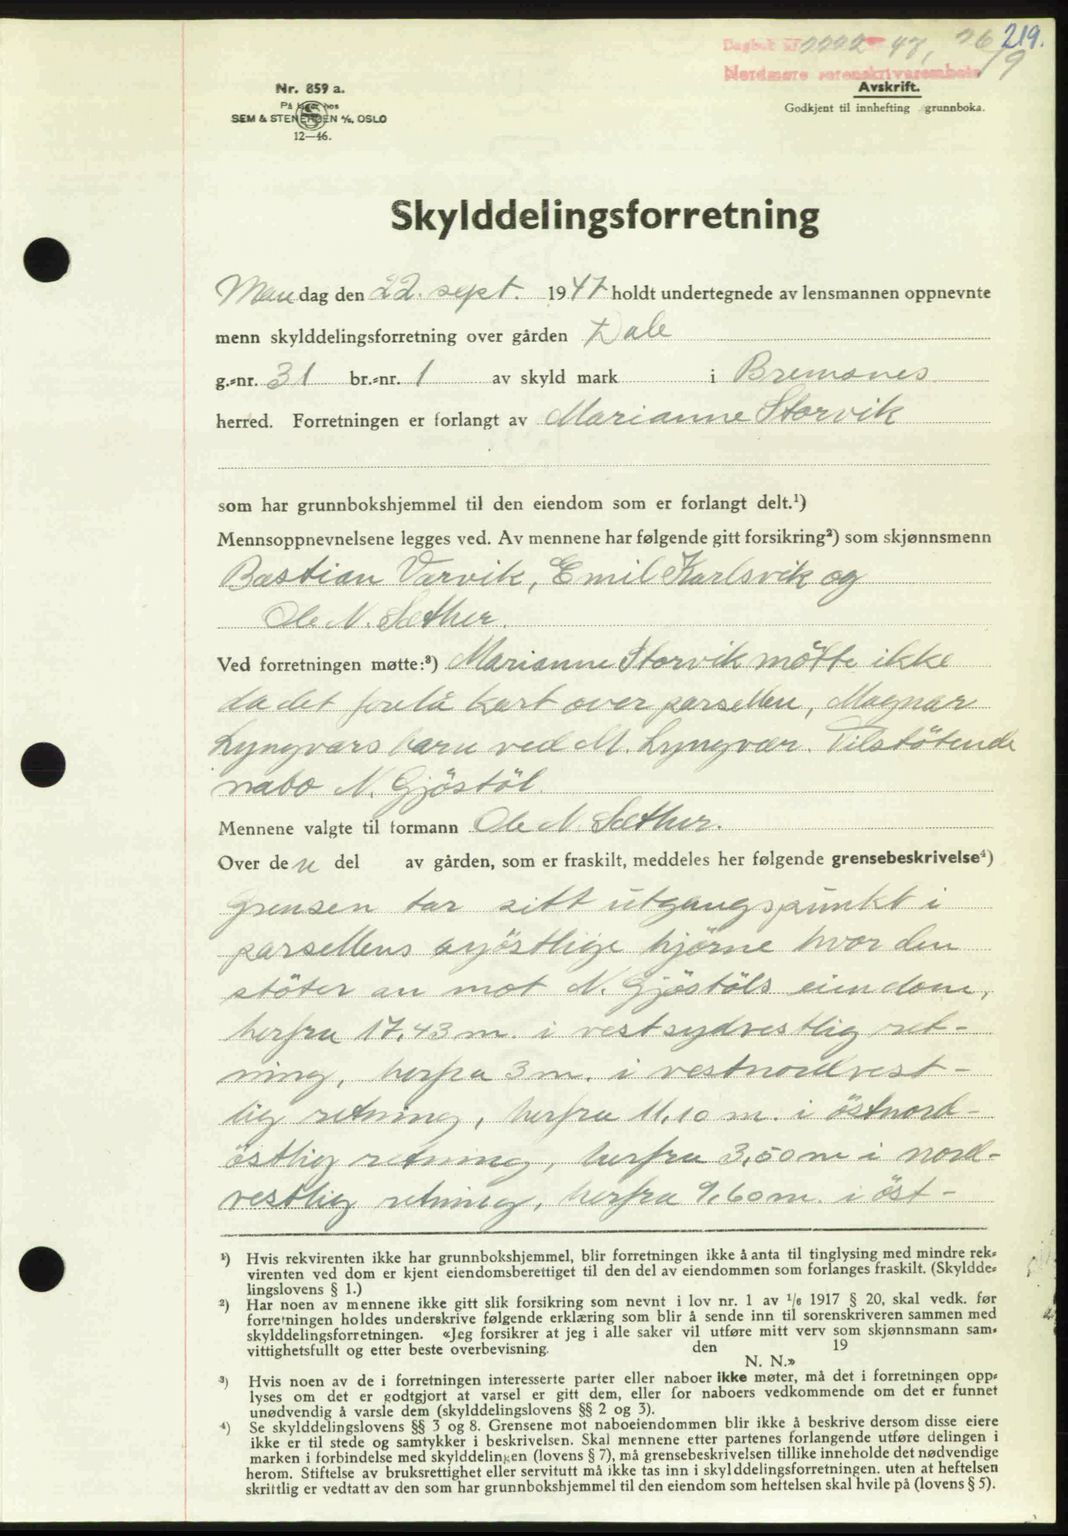 219.
Dagbok nr. 2222 47, 26/9
Nordmøre sorenskriverembete
Nr. 859 a.
På lager hos
SEM & STENERSEN A/S, OSLO
12—46.
Avskrift.
Godkjent til innhefting grunnboka.
Skylddelingsforretning
Mandag den 22. sept. 1947 holdt undertegnede av lensmannen oppnevnte
menn skylddelingsforretning over gården Dale
g.-nr. 31 br.-nr. 1 av skyld mark i Bremsnes
herred. Forretningen er forlangt av Marianne Storvik
som har grunnbokshjemmel til den eiendom som er forlangt delt.¹)
Mennsoppnevnelsene legges ved. Av mennene har følgende gitt forsikring²) som skjønnsmenn
Bastian Varvik, Emil Karlsvik og
Ole N. Sæther.
Ved forretningen møtte:³) Marianne Storvik mötte ikke
da det forelå kart over parsellen, Magnar
Lyngværs barn ved M. Lyngvær. Tilstötende
nabo N. Gjöstöl.
Mennene valgte til formann Ole N. Sæther.
Over den del av gården, som er fraskilt, meddeles her følgende grensebeskrivelse⁴)
Grensen tar sitt utgangspunkt i
parsellens syöstlige hjörne hvor den
stöter an mot N. Gjöstöls eiendom,
herfra 17,43 m. i vestsydvestlig ret-
ning, herfra 3 m. i vestnordvest-
lig retning, herfra 11,10 m. i östnord-
östlig retning, herfra 3,50 m i nord-
vestlig retning, herfra 9,60 m. i öst-
¹) Hvis rekvirenten ikke har grunnbokshjemmel, blir forretningen ikke å anta til tinglysing med mindre rek-
virenten ved dom er kjent eiendomsberettiget til den del av eiendommen som forlanges fraskilt. (Skyldde-
lingslovens § 1.)
²) Har noen av mennene ikke gitt slik forsikring som nevnt i lov nr. 1 av 1/6 1917 § 20, skal vedk. før
forretningen holdes underskrive følgende erklæring som blir å sende inn til sorenskriveren sammen med
skylddelingsforretningen. «Jeg forsikrer at jeg i alle saker vil utføre mitt verv som skjønnsmann sam-
vittighetsfullt og etter beste overbevisning. den 19
N. N.»
³) Hvis noen av de i forretningen interesserte parter eller naboer ikke møter, må det i forretningen opp-
lyses om det er godtgjort at varsel er gitt dem, eller for naboers vedkommende om det er funnet
unødvendig å varsle dem (skylddelingslovens §§ 2 og 3).
⁴) Se skylddelingslovens §§ 3 og 8. Grensene mot naboeiendommen blir ikke å beskrive dersom disse eiere
ikke er til stede og samtykker i beskrivelsen. Skal mennene etter partenes forlangende utføre delingen i
marken i forbindelse med skylddelingen (lovens § 7), må grensebeskrivelsen tillike inneholde det nødvendige
herom. Stiftelse av bruksrettighet eller servitutt må ikke tas inn i skylddelingsforretningen. uten at heftelsen
skriftlig er vedtatt av den som har grunnbokshjemmel til den eiendom som heftelsen skal hvile på (lovens § 5).